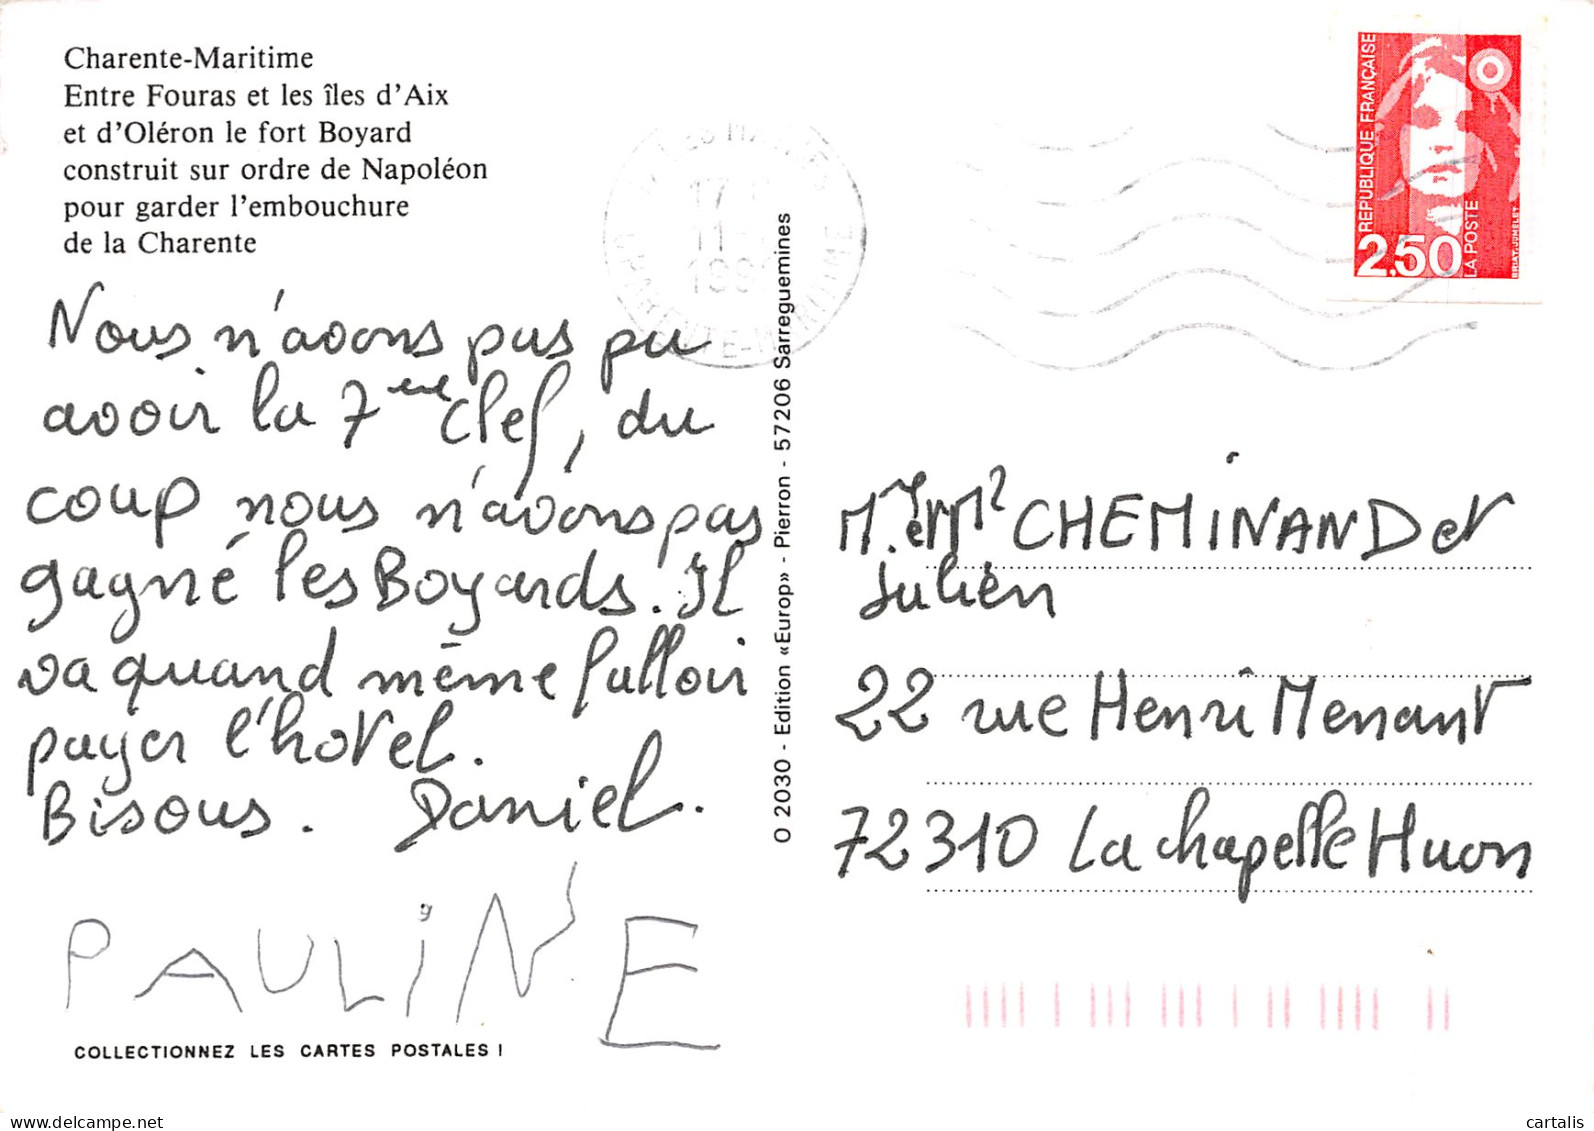 Charente-Maritime
Entre Fouras et les îles d'Aix
et d'Oléron le fort Boyard
construit sur ordre de Napoléon
pour garder l'embouchure
de la Charente
Nous n'avons pas pu
avoir la 7ème clef, du
coup nous n'avons pas
gagné les Boyards. Il
va quand même falloir
payer l'hotel.
Bisous. Daniel.
PAULiNE
COLLECTIONNEZ LES CARTES POSTALES !
O 2030 - Edition «Europ» - Pierron - 57206 Sarreguemines
17
11
CHARENTE-MARITIME
RÉPUBLIQUE FRANÇAISE
2,50
LA POSTE
BRIAT-JUMELET
CHEMINAND et
Julien
22 rue Henri Menant
72310 La chapelle Huon
cartalis
www.delcampe.net